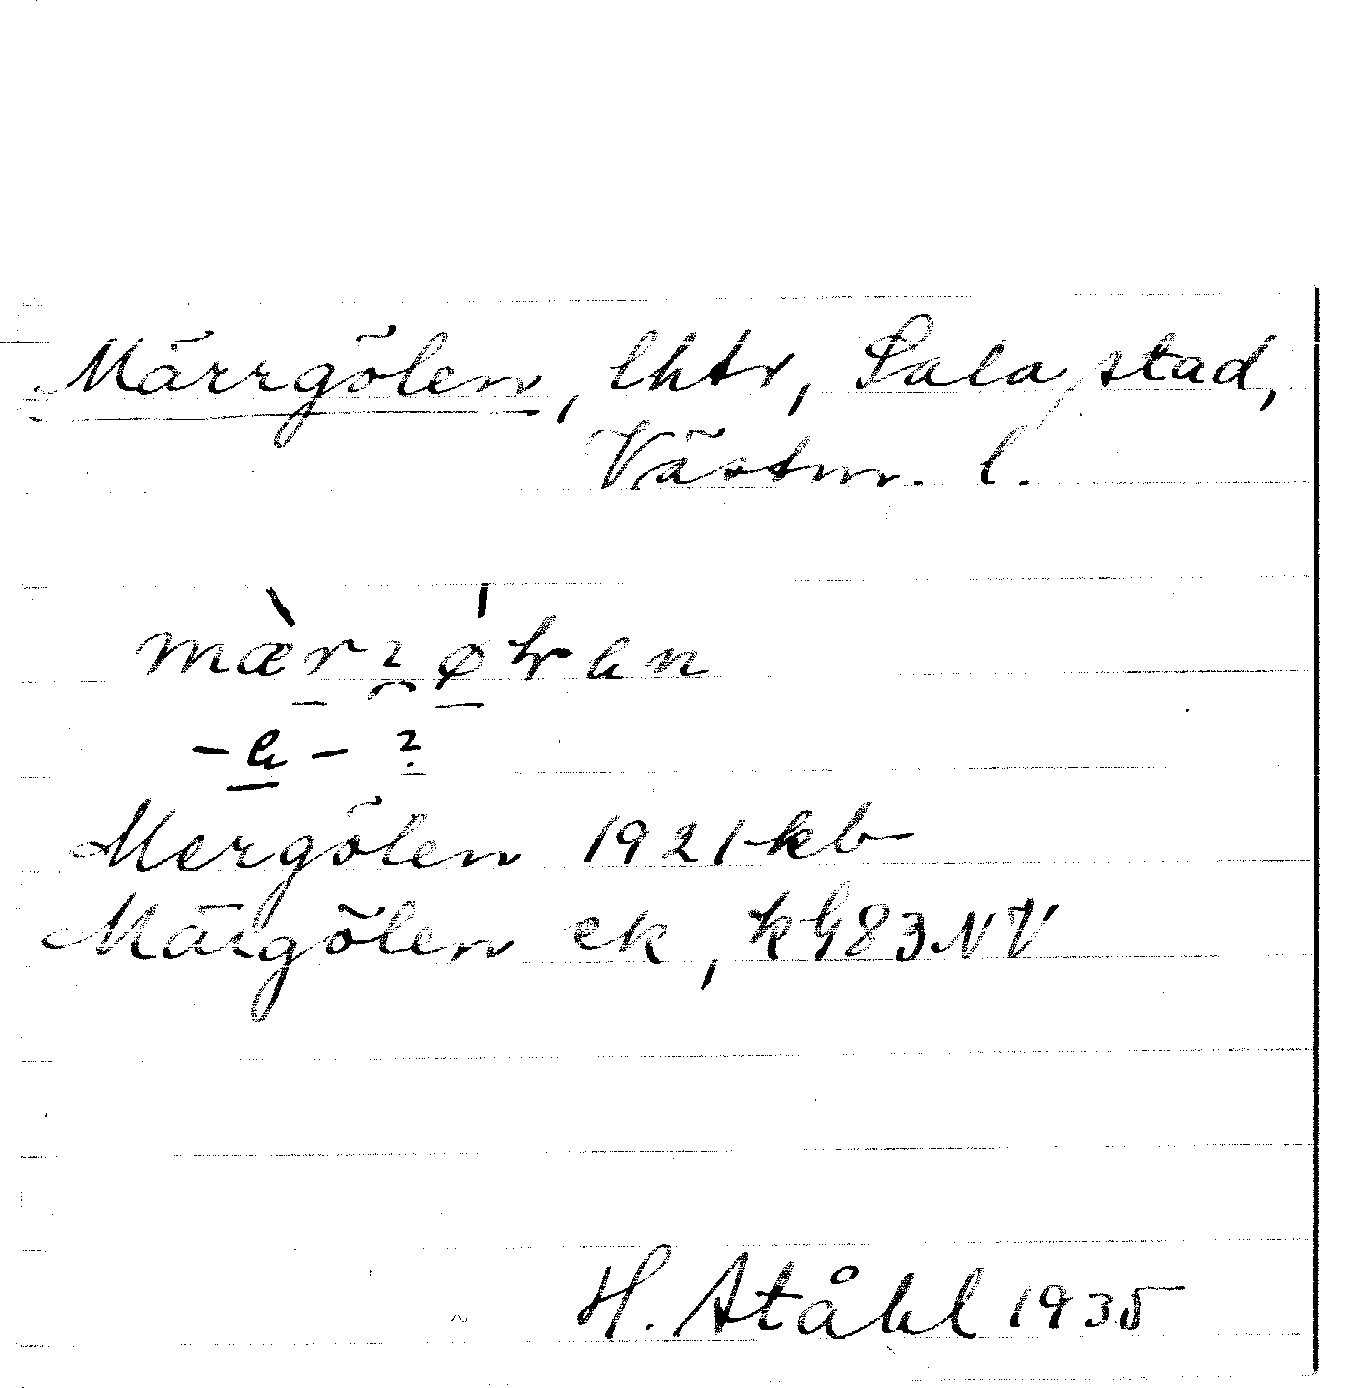 Märrgölen, lhtr, Sala stad,
Västm. l.
Mergölen 1921 kb
Märgölen ek, k G83NV
H. Ståhl 1935